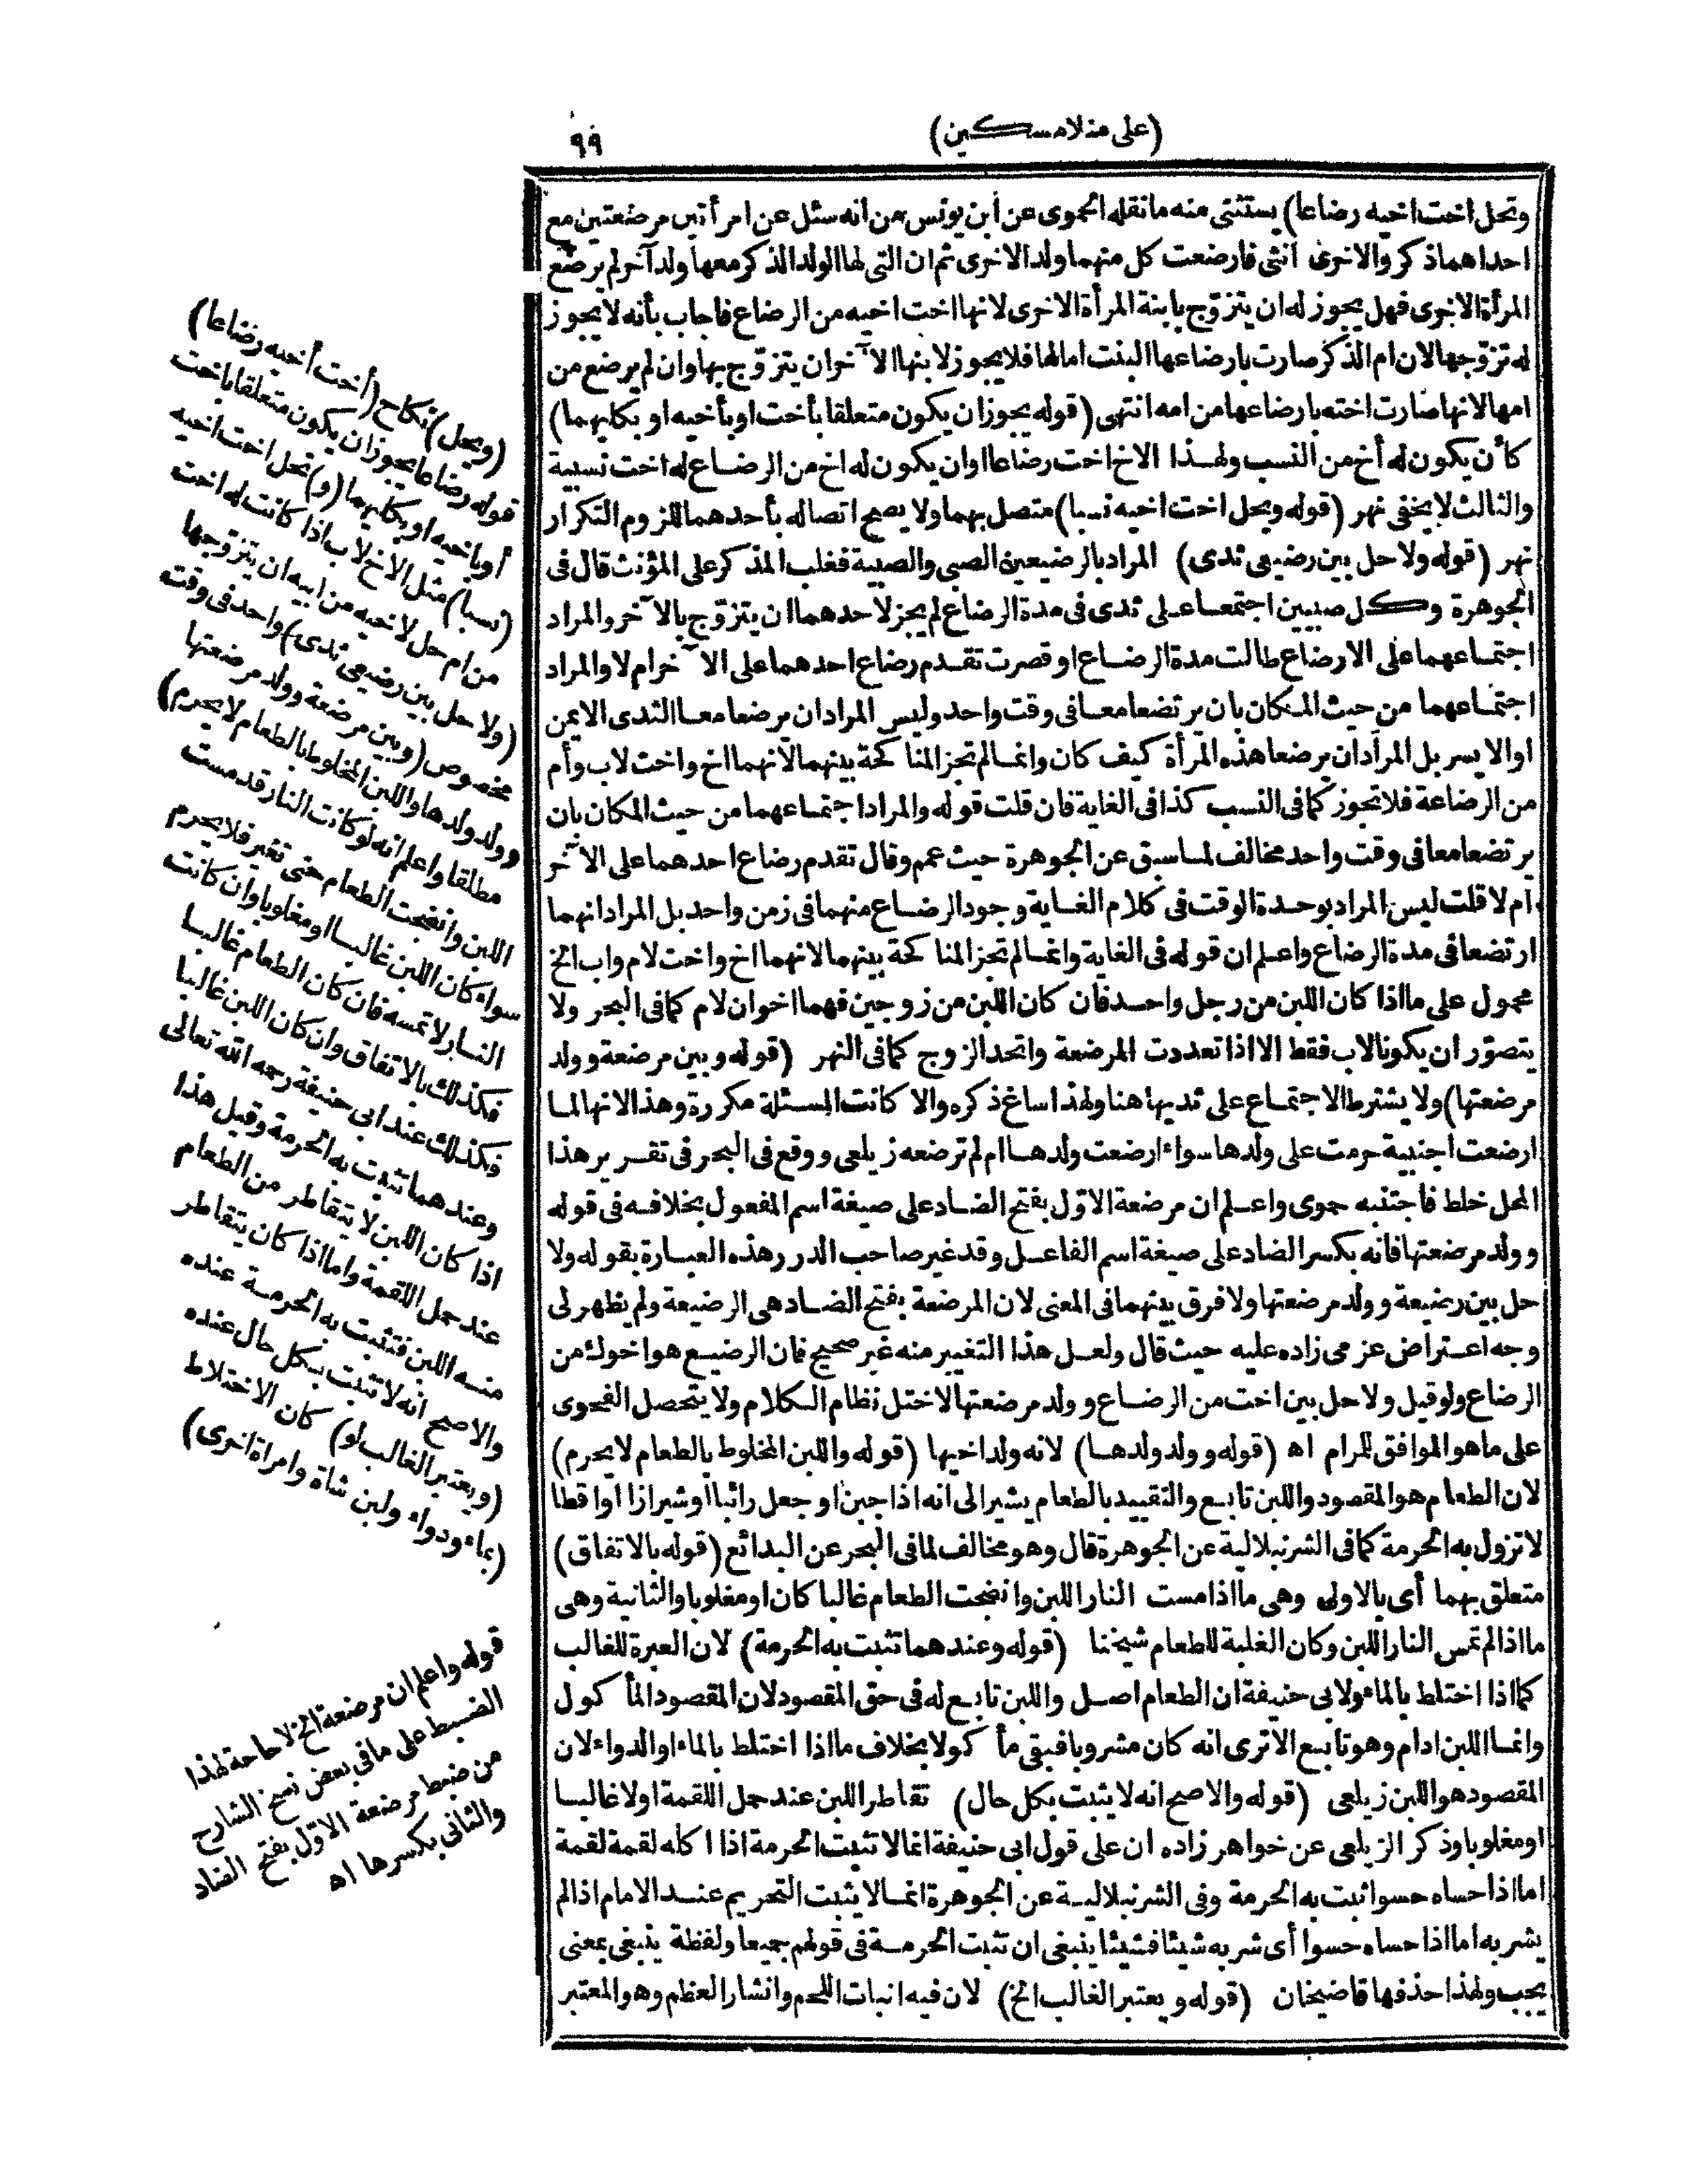 (على منلا مسكين)
٩٩
وتحل اخت اخيه رضاعا) يستثنى منه ما نقله الحموى عن ابن يونس من انه سئل عن امرأتين مرضعتين مع
احداهما ذكر والاخرى انثى فارضعت كل منهما ولد الاخرى ثم ان التى لها الولد الذكر معها ولد آخر لم يرضع
المرأة الاخرى فهل يجوز له ان يتزوّج بابنة المرأة الاخرى لانها اخت اخيه من الرضاع فاجاب بأنه لا يجوز
له تزوّجها لان ام الذكر صارت بارضاعها البنت امالها فلا يجوز لابنها الآخر ان يتزوّج بها وان لم يرضع من
امها لانها صارت اخته بارضاعها من امه انتهى (قوله يجوز ان يكون متعلقا بأخت او بأخيه او بكليهما)
كأن يكون له أخ من النسب ولهذا الاخ اخت رضاعا او ان يكون له اخ من الرضاع له اخت نسبية
والثالث لا يخفى نهر (قوله ويحل اخت اخيه نسبا) متصل بهما ولا يصح اتصاله بأحدهما للزوم التكرار
نهر (قوله ولا حل بين رضيعى ثدى) المراد بالرضيعين الصبى والصبية فغلب المذكر على المؤنث قال فى
الجوهرة وكل صبيين اجتمعا على ثدى فى مدة الرضاع لم يجز لاحدهما ان يتزوّج بالآخر والمراد
اجتماعهما على الارضاع طالت مدة الرضاع او قصرت تقدم رضاع احدهما على الآخر ام لا والمراد
اجتماعهما من حيث المكان بان يرتضعا معا فى وقت واحد وليس المراد ان يرضعا معا الثدى الايمن
او الايسر بل المراد ان يرضعا هذه المرأة كيف كان وانما لم تجز المناكحة بينهما لانهما اخ واخت لاب وأم
من الرضاعة فلا تجوز كما فى النسب كذا فى الغاية فان قلت قوله والمراد اجتماعهما من حيث المكان بان
يرتضعا معا فى وقت واحد مخالف لما سبق عن الجوهرة حيث عمم وقال تقدم رضاع احدهما على الآخر
ام لا قلت ليس المراد بوحدة الوقت فى كلام الغاية وجود الرضاع منهما فى زمن واحد بل المراد انهما
ارتضعا فى مدة الرضاع واعلم ان قوله فى الغاية وانما لم تجز المناكحة بينهما لانهما اخ واخت لام واب الخ
محمول على ما اذا كان اللبن من رجل واحد فان كان اللبن من زوجين فهما اخوان لام كما فى البحر ولا
يتصوّر ان يكونا لاب فقط الا اذا تعددت المرضعة واتحد الزوج كما فى النهر (قوله وبين مرضعة وولد
مرضعتها) ولا يشترط الاجتماع على ثديها هنا ولهذا ساغ ذكره والا كانت المسئلة مكررة وهذا لانها لما
ارضعت اجنبية حرمت على ولدها سواء ارضعت ولدها ام لم ترضعه زيلعى ووقع فى البحر فى تقرير هذا
المحل خلط فاجتنبه حموى واعلم ان مرضعة الاوّل بفتح الضاد على صيغة اسم المفعول بخلافه فى قوله
وولد مرضعتها فانه بكسر الضاد على صيغة اسم الفاعل وقد غير صاحب الدرر هذه العبارة بقوله ولا
حل بين رضيعة وولد مرضعتها ولا فرق بينهما فى المعنى لان المرضعة بفتح الضاد هى الرضيعة ولم يظهر لى
وجه اعتراض عزمى زاده عليه حيث قال ولعل هذا التغيير منه غير صحيح فان الرضيع هو اخوك من
الرضاع ولو قيل ولا حل بين اخت من الرضاع وولد مرضعتها لاختل نظام الكلام ولا يتحصل الفحوى
على ما هو الموافق للمرام اه (قوله وولد ولدها) لانه ولد اخيها (قوله واللبن المخلوط بالطعام لا يحرم)
لان الطعام هو المقصود واللبن تابع والتقييد بالطعام يشير الى انه اذا جبن او جعل رائبا او شيرازا او اقطا
لا تزول به الحرمة كما فى الشرنبلالية عن الجوهرة قال وهو مخالف لما فى البحر عن البدائع (قوله بالاتفاق)
متعلق بهما أى بالاولى وهى ما اذا مست النار اللبن وانضجت الطعام غالبا كان او مغلوبا والثانية وهى
ما اذا لم تمس النار اللبن وكان الغلبة للطعام شيخنا (قوله وعندهما تثبت به الحرمة) لان العبرة للغالب
كما اذا اختلط بالماء ولابى حنيفة ان الطعام اصل واللبن تابع له فى حق المقصود لان المقصود المأكول
وانما اللبن ادام وهو تابع الا ترى انه كان مشروبا فبقى مأكولا بخلاف ما اذا اختلط بالماء او الدواء لان
المقصود هو اللبن زيلعى (قوله والاصح انه لا يثبت بكل حال) تقاطر اللبن عند حمل اللقمة او لا غالبا
او مغلوبا وذكر الزيلعى عن خواهر زاده ان على قول ابى حنيفة انما لا تثبت الحرمة اذا اكله لقمة لقمة
اما اذا حساه حسوا ثبت به الحرمة وفى الشرنبلالية عن الجوهرة انما لا يثبت التحريم عند الامام اذا لم
يشربه اما اذا حساه حسوا أى شربه شيئا فشيئا ينبغى ان تثبت الحرمة فى قولهم جميعا ولفظة ينبغى بمعنى
يجب ولهذا حذفها قاضيخان (قوله ويعتبر الغالب الخ) لان فيه انبات اللحم وانشار العظم وهو المعتبر
(ويحل) نكاح (أخت أخيه رضاعا)
قوله رضاعا يجوز ان يكون متعلقا باخت
أو باخيه او بكليهما (و) تحل اخت اخيه
(نسبا) مثل الاخ لاب اذا كانت له اخت
من ام حل لاخيه من ابيه ان يتزوّجها
(ولا حل بين رضيعى ثدى) واحد فى وقت
مخصوص (وبين مرضعة وولد مرضعتها
وولد ولدها واللبن المخلوط بالطعام لا يحرم)
مطلقا واعلم انه لو كانت النار قد مست
اللبن وانضجت الطعام حتى تغير فلا يحرم
سواء كان اللبن غالبا او مغلوبا وان كانت
النار لا تمسه فان كان الطعام غالبا
فكذلك بالاتفاق وان كان اللبن غالبا
فكذلك عند ابى حنيفة رحمه الله تعالى
وعندهما تثبت به الحرمة وقيل هذا
اذا كان اللبن لا يتقاطر من الطعام
عند حمل اللقمة واما اذا كان يتقاطر
منه اللبن فتثبت به الحرمة عنده
والاصح انه لا تثبت بكل حال عنده
(ويعتبر الغالب لو) كان الاختلاط
(بماء ودواء ولبن شاة وامرأة اخرى)
قوله واعلم ان مرضعة الخ لا حاجة لهذا
الضبط على ما فى بعض نسخ الشارح
من ضبط مرضعة الاوّل بفتح الضاد
والثانى بكسرها اه